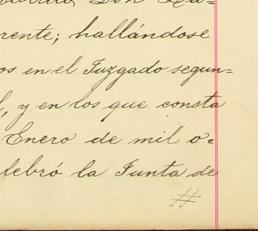 Don
rente; hallándose
os en el Juzgado segun=
l, y en los que consta
Enero de mil o=
lebró la Junta de
#